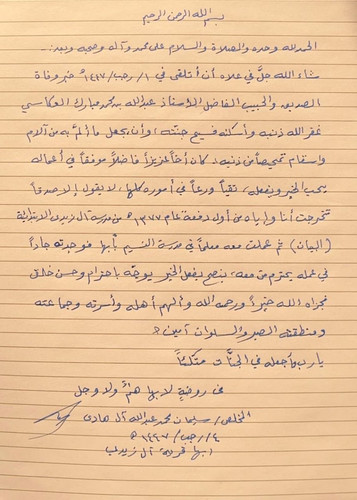 بسم الله الرحمن الرحيم
الحمد لله وحده والصلاة والسلام على محمد وآله وصحبه وبعد:..
شاء الله جلَّ في علاه أن أتلقى في ١/رجب/١٤٤٧ هـ خبر وفاة
الصديق والحبيب الفاضل الأستاذ عبدالله بن محمد مبارك العكاسي
غفر الله ذنبه وأسكنه فسيح جنته، وأن يجعل ما ألمَّ به من آلام
وأسقام تمحيصاً من ذنبه، كان أخاً عزيزاً فاضلاً موفقاً في أعماله
يحب الخير وبفعله، تقياً ورعاً في أموره كلها، لا يقول إلا صدقاً
تخرجت أنا وإياه من أول دفعة عام ١٣٧٧هـ من مدرسة آل زيدى الابتدائية
(البيان) ثم عملت معه معلماً في مدرسة النسيم بأبها فوجدته جاداً
في عمله يحترم من معه، ينصح بفعل الخير يوجِّه باحترام وحسن خلق
فجزاه الله خيراً ورحمه الله وألهم أهله وأسرته وجماعته
ومنطقته الصبر والسلوان آمين،
يا رب واجعله في الجنَّات متكئاً
في روضةٍ لا بها همٌ ولا وجل
المخلص/ سليمان محمد عبدالله آل هادى
٤/رجب/١٤٤٧هـ
أبها قرية آل زيدى